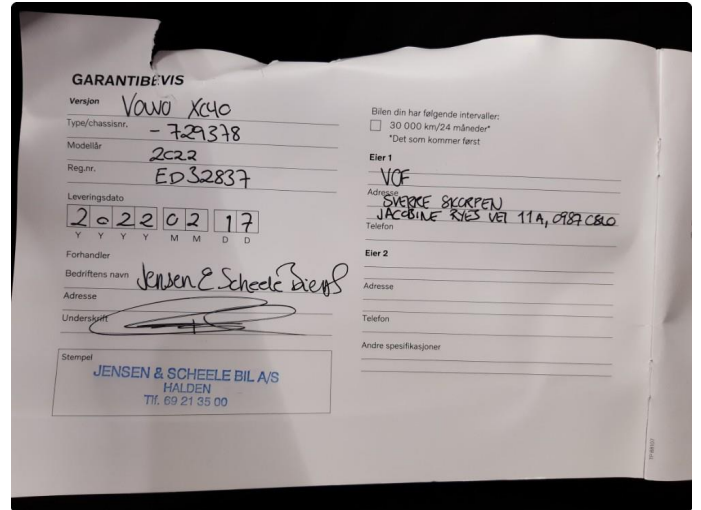 GARANTIBEVIS
Versjon Volvo XC40
Type/chassisnr. - 729378
Modellår 2022
Reg.nr. ED32837
Leveringsdato
2022 02 17
Y Y Y Y M M D D
Forhandler
Bedriftens navn Jensen & Scheele Bil A/S
Adresse
Underskrift
Stempel
JENSEN & SCHEELE BIL A/S
HALDEN
Tlf. 69 21 35 00
Bilen din har følgende intervaller:
30 000 km/24 måneder*
*Det som kommer først
Eier 1
VOF
Adresse SVERRE SKORPEN
JACOBINE RYES VEI 11A, 0987 OSLO
Telefon
Eier 2
Adresse
Telefon
Andre spesifikasjoner